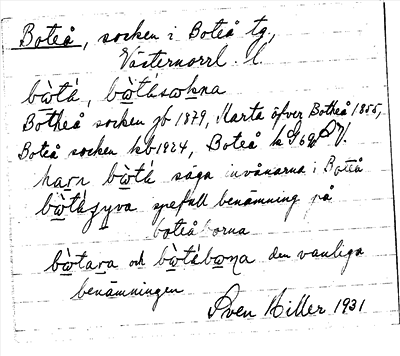 Boteå, socken i Boteå tg,
Västernorrl. l.
bὼtá, bὼtásωkna
Botheå socken jb 1879, Karta öfver Botheå 1855,
Boteå socken kb 1924, Boteå k
harn bὼtá säga invånarna i Boteå
spefull benämning på
boteåborna
bὼtara och bὼtábωna den vanliga
benämningen
Sven Hiller 1931